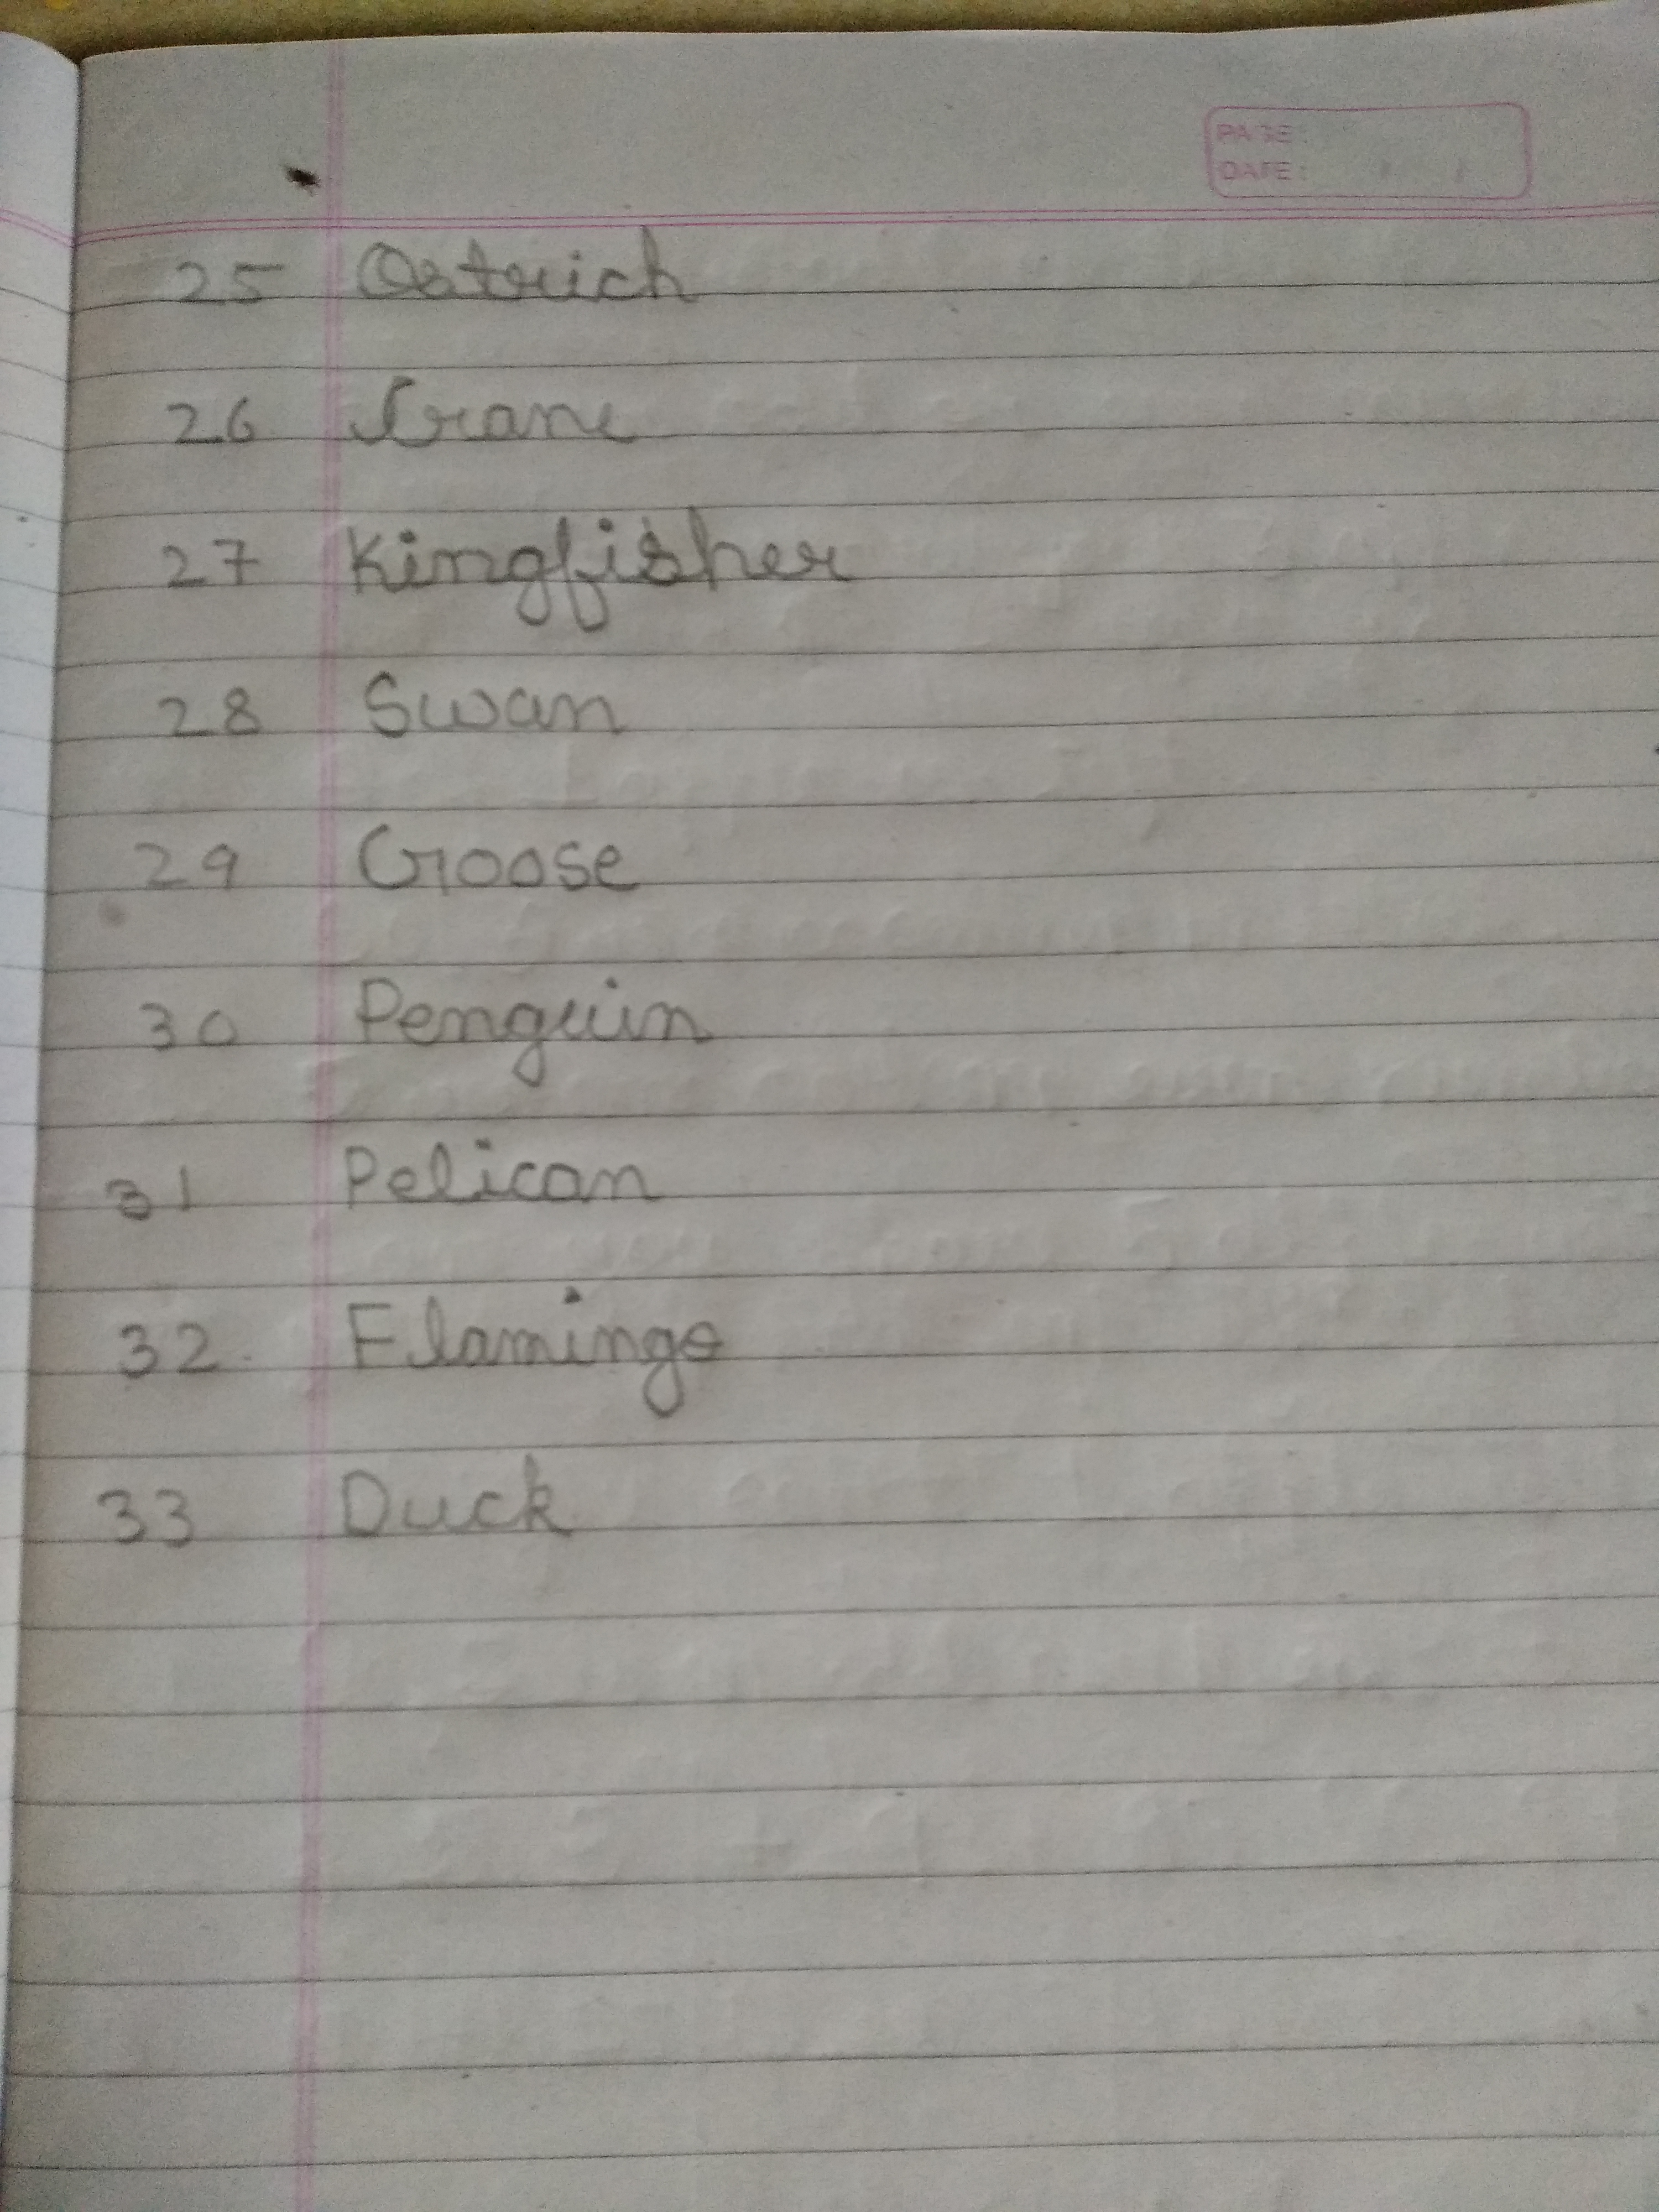 PAGE:
DATE:
25 Ostrich
26 Crane
27 Kingfisher
28 Swan
29 Goose
30 Penguin
31 Pelican
32 Flamingo
33 Duck